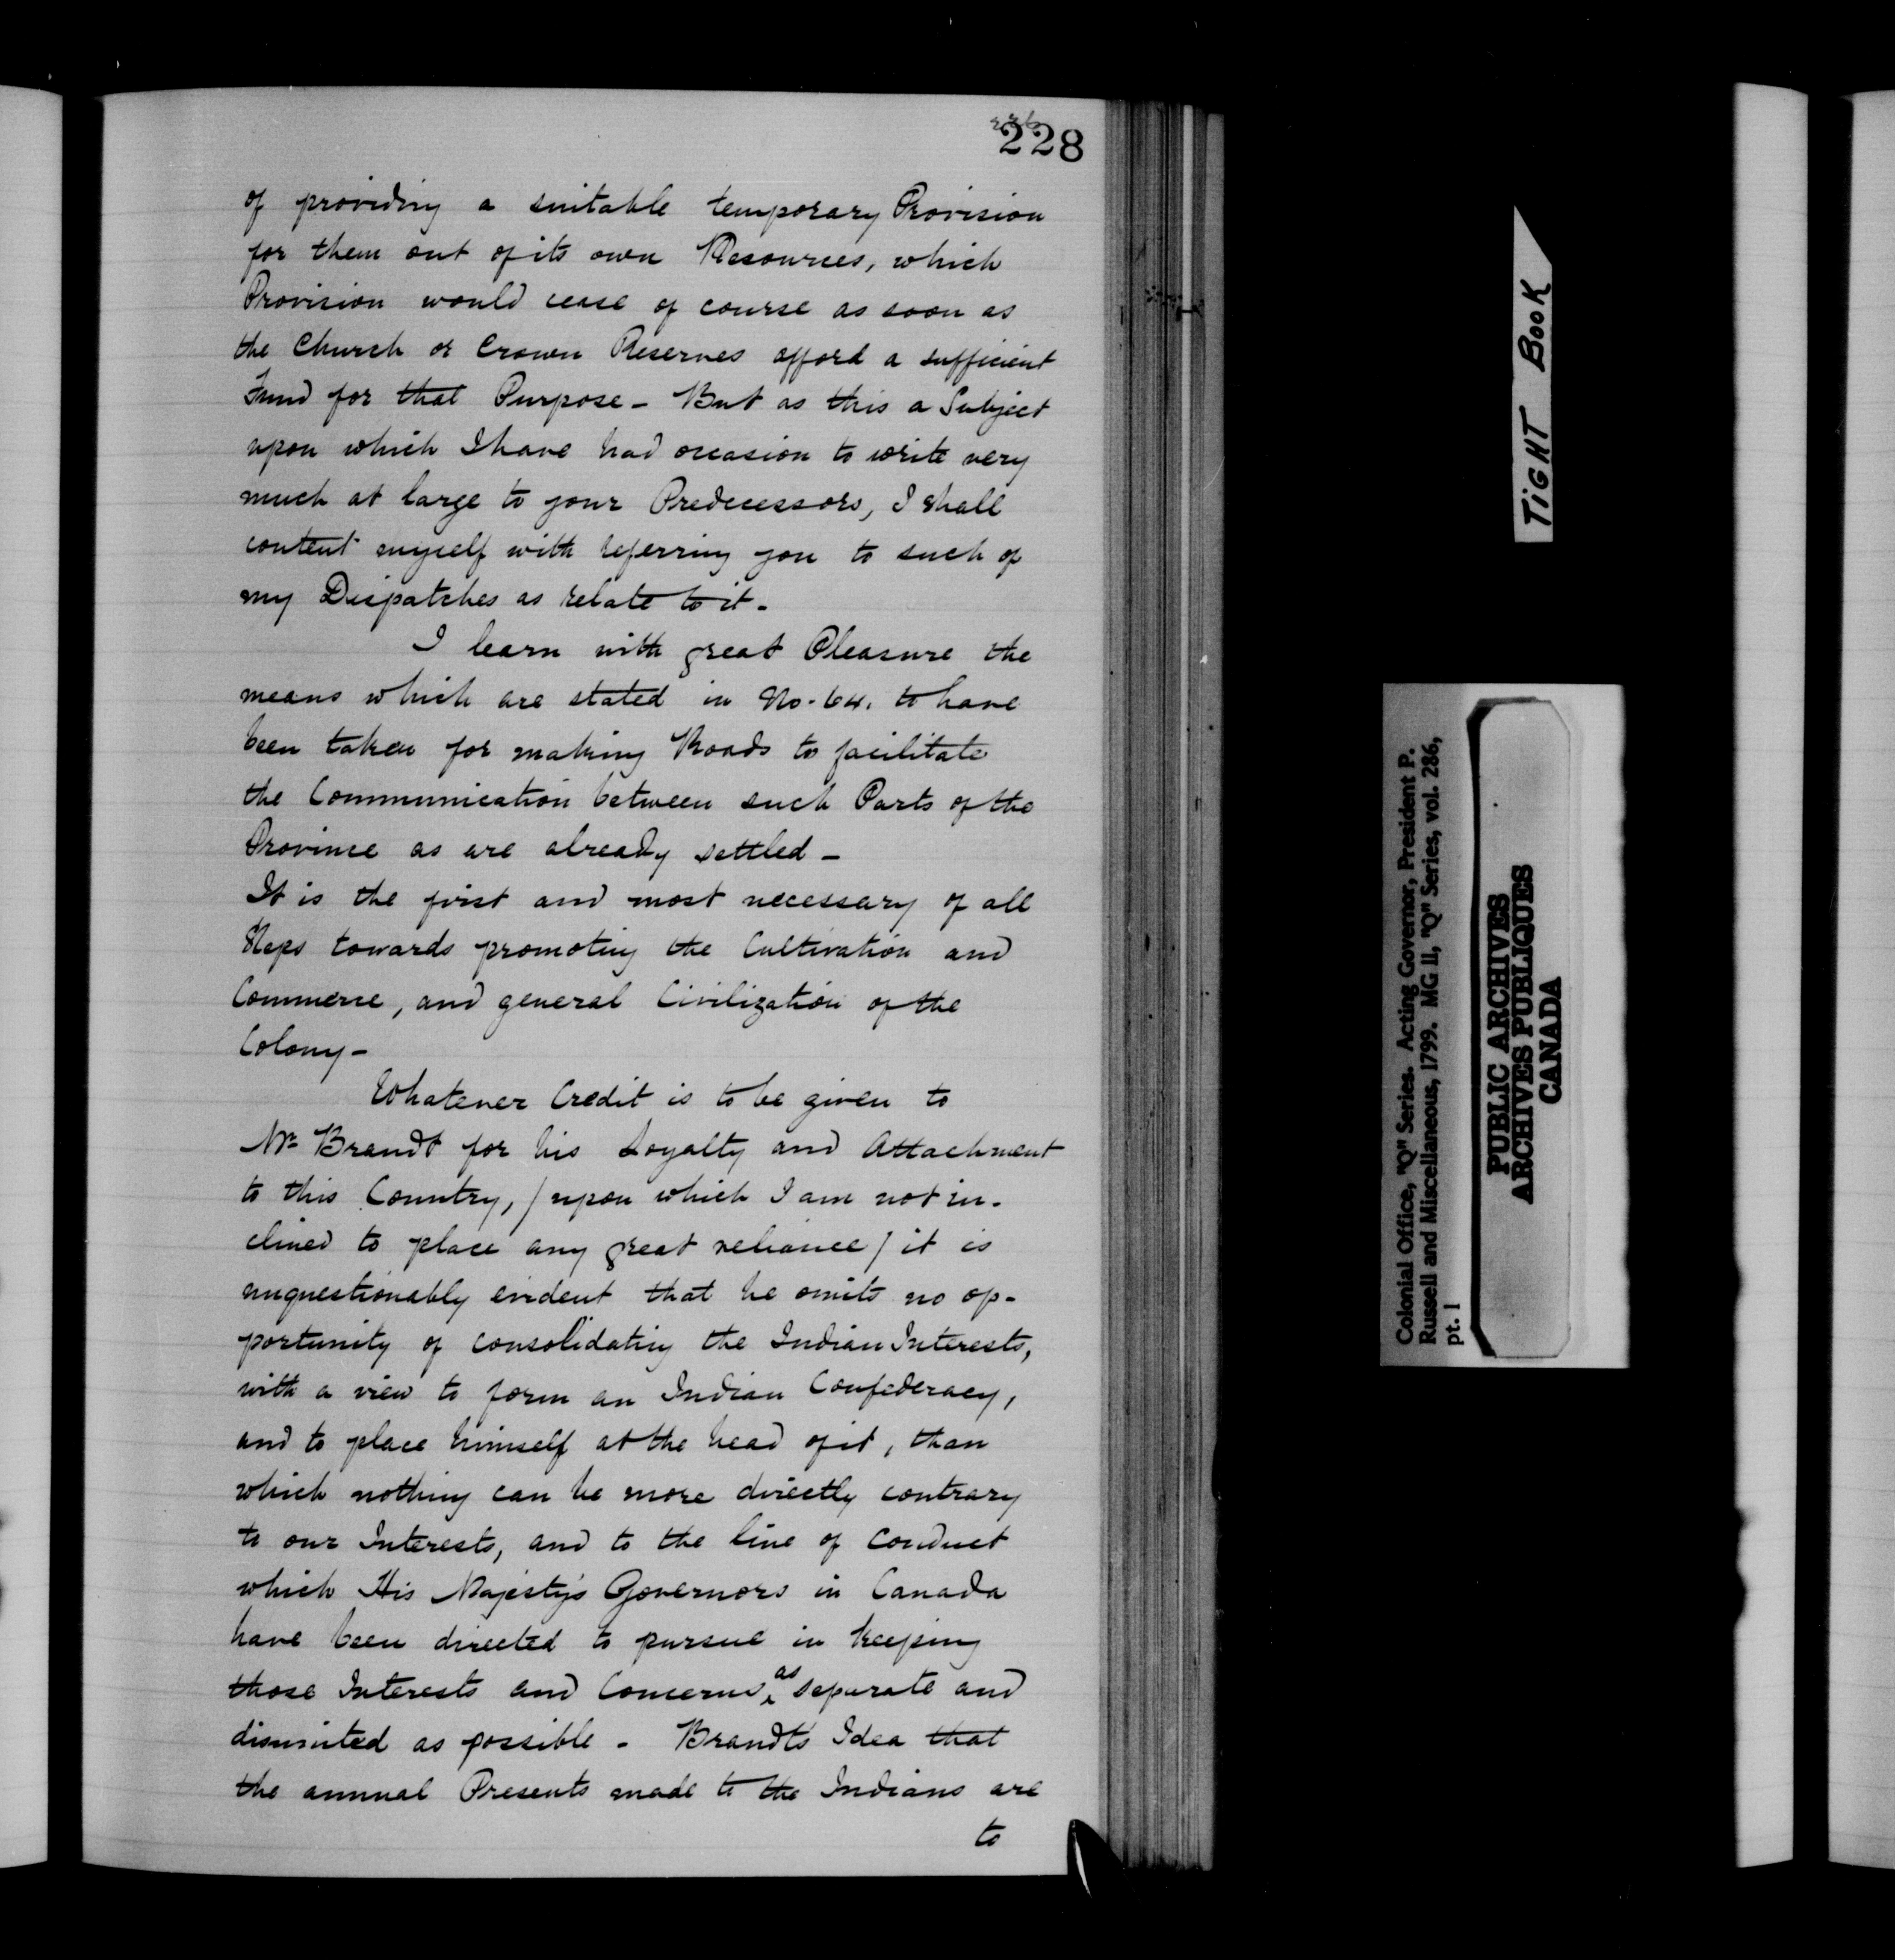 228
of providing a suitable temporary Provision
for them out of its own Resources, which
Provision would cease of course as soon as
the Church or Crown Reserves afford a sufficient
Fund for that Purpose - But as this a Subject
upon which I have had occasion to write very
much at large to your Predecessors, I shall
content myself with referring you to such of
my Dispatches as relate to it -
I learn with great Pleasure the
means which are stated in No. 64. to have
been taken for making Roads to facilitate
the Communication between such Parts of the
Province as are already settled -
It is the first and most necessary of all
Steps towards promoting the Cultivation and
Commerce, and general Civilization of the
Colony -
Whatever Credit is to be given to
Mr Brandt for his Loyalty and Attachment
to this Country, / upon which I am not in-
clined to place any great reliance / it is
unquestionably evident that he omits no op-
portunity of consolidating the Indian Interests,
with a view to form an Indian Confederacy,
and to place himself at the head of it, than
which nothing can be more directly contrary
to our Interests, and to the line of conduct
which His Majesty's Governors in Canada
have been directed to pursue in keeping
those Interests and Concerns as separate and
disunited as possible - Brandt's Idea that
the annual Presents made to the Indians are
to
TIGHT BOOK
Colonial Office, "Q" Series. Acting Governor, President P.
Russell and Miscellaneous, 1799. MG 11, "Q" Series, vol. 286,
pt. 1
PUBLIC ARCHIVES
ARCHIVES PUBLIQUES
CANADA